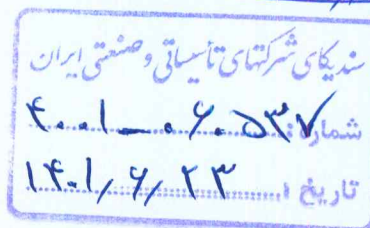 سندیکای شرکتهای تأسیساتی و صنعتی ایران
شماره: ۴۰۰۱-۰۶۰۵۳۷
تاریخ: ۱۴۰۱/۶/۲۳